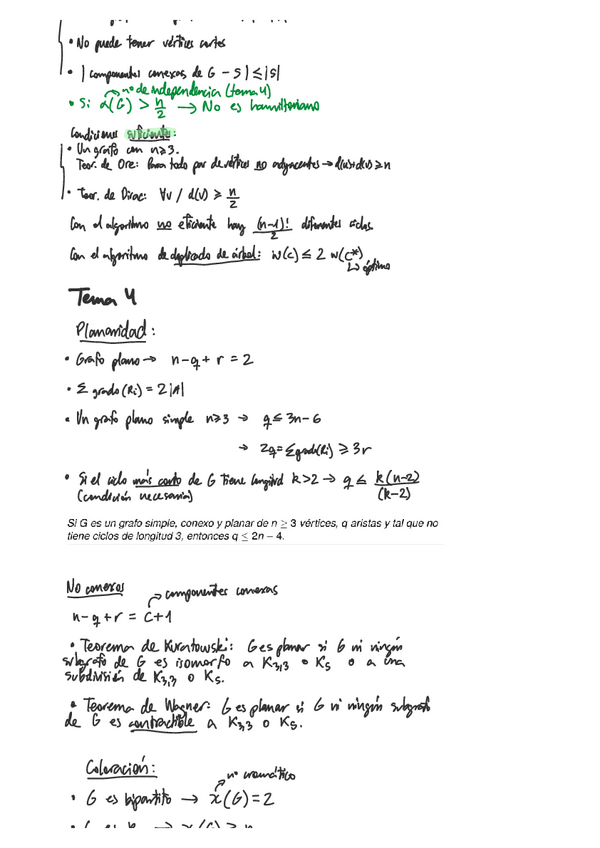 • No puede tener vértices cortes
• | componentes conexas de G - S | ≤ |S|
nº de independencia (tema 4)
• Si α(G) > n/2 → No es hamiltoniano
Condiciones suficiente:
• Un grafo con n ≥ 3.
Teor. de Ore: Para todo par de vértices no adyacentes → d(u)+d(v) ≥ n
• Teor. de Dirac: ∀v / d(v) ≥ n/2
Con el algoritmo no eficiente hay (n-1)!/2 diferentes ciclos.
Con el algoritmo de duplicado de árbol: w(c) ≤ 2 w(c*)
↳ óptimo
Tema 4
Planaridad:
• Grafo plano → n - q + r = 2
• Σ grado(Ri) = 2|A|
• Un grafo plano simple n ≥ 3 → q ≤ 3n - 6
→ 2q = Σ grado(Ri) ≥ 3r
• Si el ciclo más corto de G tiene longitud k > 2 → q ≤ k(n-2)/(k-2)
(condición necesaria)
Si G es un grafo simple, conexo y planar de n ≥ 3 vértices, q aristas y tal que no
tiene ciclos de longitud 3, entonces q ≤ 2n − 4.
No conexos
componentes conexas
n - q + r = C + 1
• Teorema de Kuratowski: G es planar si G ni ningún
subgrafo de G es isomorfo a K3,3 o K5 o a una
subdivisión de K3,3 o K5.
• Teorema de Wagner: G es planar si G ni ningún subgrafo
de G es contractible a K3,3 o K5.
Coloración:
nº cromático
• G es bipartito → x(G) = 2